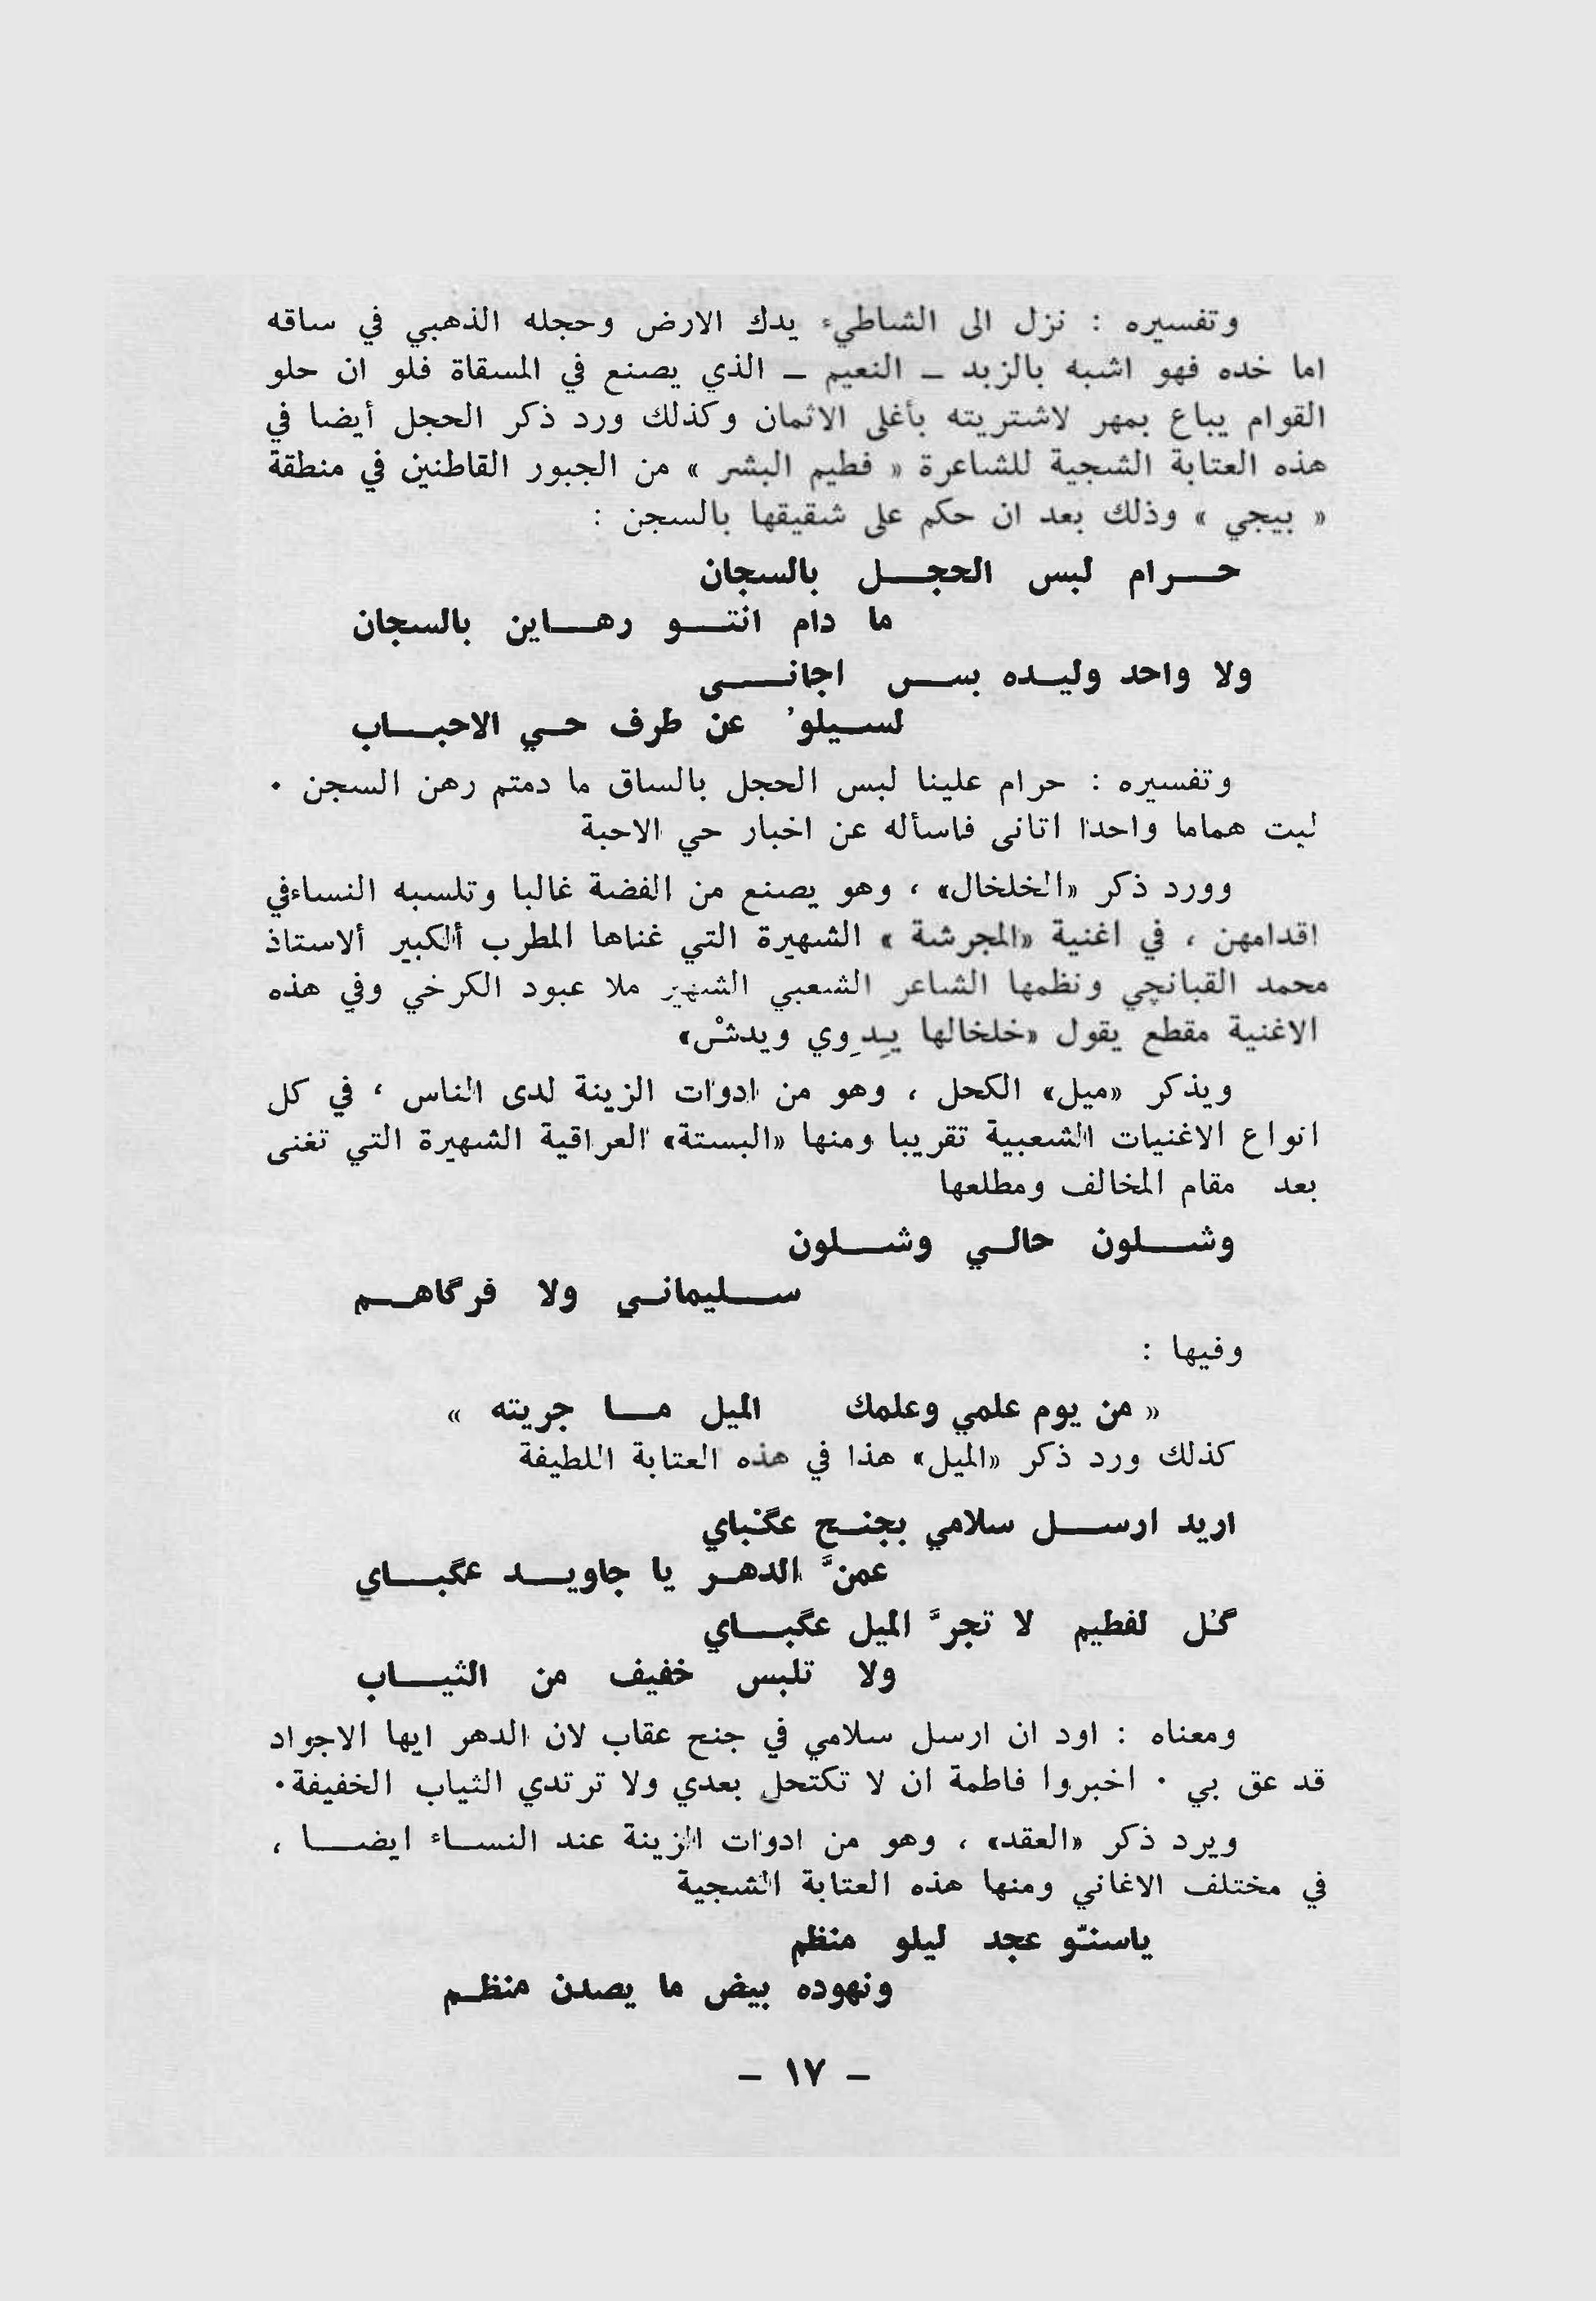 وتفسيره : نزل الى الشاطيء يدك الارض وحجله الذهبي في ساقه
اما خده فهو اشبه بالزبد ــ النعيم ــ الذي يصنع في المسقاة فلو ان حلو
القوام يباع بمهر لاشتريته بأغلى الاثمان وكذلك ورد ذكر الحجل أيضا في
هذه العتابة الشجية للشاعرة « فطيم البشر » من الجبور القاطنين في منطقة
« بيجي » وذلك بعد ان حكم على شقيقها بالسجن :
حـــرام لبس الحجـــل بالسجان
ما دام انتـــو رهـــاين بالسجان
ولا واحد وليـده بســس اجانـــى
لســيلو' عن طرف حـي الاحبـــاب
وتفسيره : حرام علينا لبس الحجل بالساق ما دمتم رهن السجن ٠
ليت هماما واحدا اتانى فاسأله عن اخبار حي الاحبة
وورد ذكر «الخلخال» ، وهو يصنع من الفضة غالبا وتلسبه النساءفي
اقدامهن ، في اغنية «المجرشة » الشهيرة التي غناها المطرب ألكبير ألاستاذ
محمد القبانچي ونظمها الشاعر الشعبي الشهير ملا عبود الكرخي وفي هذه
الاغنية مقطع يقول «خلخالها يِدِوي ويدشْ»
ويذكر «ميل» الكحل ، وهو من ادوات الزينة لدى الناس ، في كل
انواع الاغنيات الشعبية تقريبا ومنها «البستة» العراقية الشهيرة التي تغنى
بعد مقام المخالف ومطلعها
وشـــلون حالـي وشـــلون
ســـليمانـي ولا فرگاهـــم
وفيها :
« من يوم علمي وعلمك الميل مـــا جريته »
كذلك ورد ذكر «الميل» هذا في هذه العتابة اللطيفة
اريد ارســـل سلامي بجنـح عگْباي
عمنَّ الدهـر يا جاويـــد عگبـــاي
گُل لفطيم لا تجرَّ الميل عگبـــاي
ولا تلبس خفيف من الثيـــاب
ومعناه : اود ان ارسل سلامي في جنح عقاب لان الدهر ايها الاجواد
قد عق بي ٠ اخبروا فاطمة ان لا تكتحل بعدي ولا ترتدي الثياب الخفيفة٠
ويرد ذكر «العقد» ، وهو من ادوات الزينة عند النسـاء ايضـــا ،
في مختلف الاغاني ومنها هذه العتابة الشجية
ياسنّو عجد ليلو منظم
ونهوده بيض ما يصدن منظـم
ــ ١٧ ــ